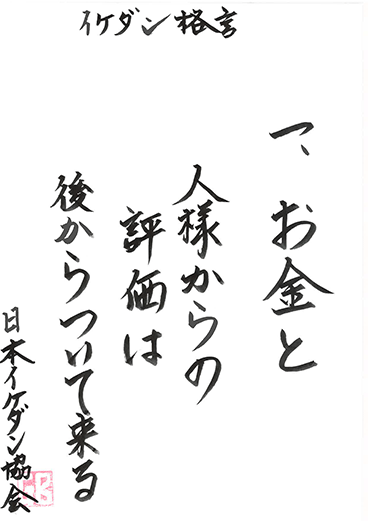 イケダン格言
一、お金と
人様からの
評価は
後からついて来る
日本イケダン協会